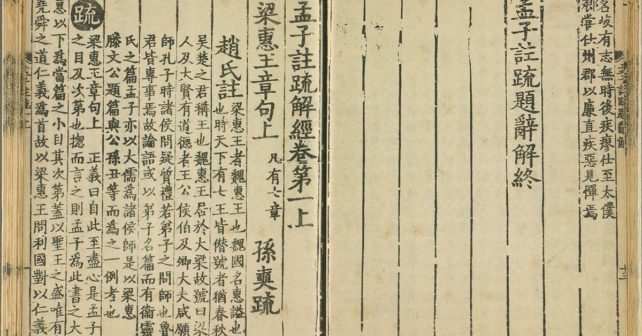 名岐有志無時後疾瘳仕至太僕
卿嘗仕州郡以廉直疾惡見憚焉
孟子註疏題辭解終
孟子註疏解經卷第一上
梁惠王章句上 凡有七章 孫奭疏
趙氏註 梁惠王者魏惠王也魏國名惠謚也
也時天下有七王皆僭號者猶春秋
吳楚之君稱王也魏惠王居於大梁故號曰梁
人及大賢有道德者王公侯伯及卿大夫咸願
師孔子時諸侯問疑質禮若弟子之問師也魯
君皆專事焉故論語或以弟子名篇而有衛靈
氏之篇孟子亦以大儒為諸侯師是以梁惠
滕文公題篇與公孫丑等而為之一例者也
疏 梁惠王章句上 正義曰自此至盡心是孟子
之目及次第也揔而言之則孟子為此書之大
惠以下為當篇之小目其次第蓋以聖王之盛唯有
堯舜之道仁義為首故以梁惠王問利國對以仁義